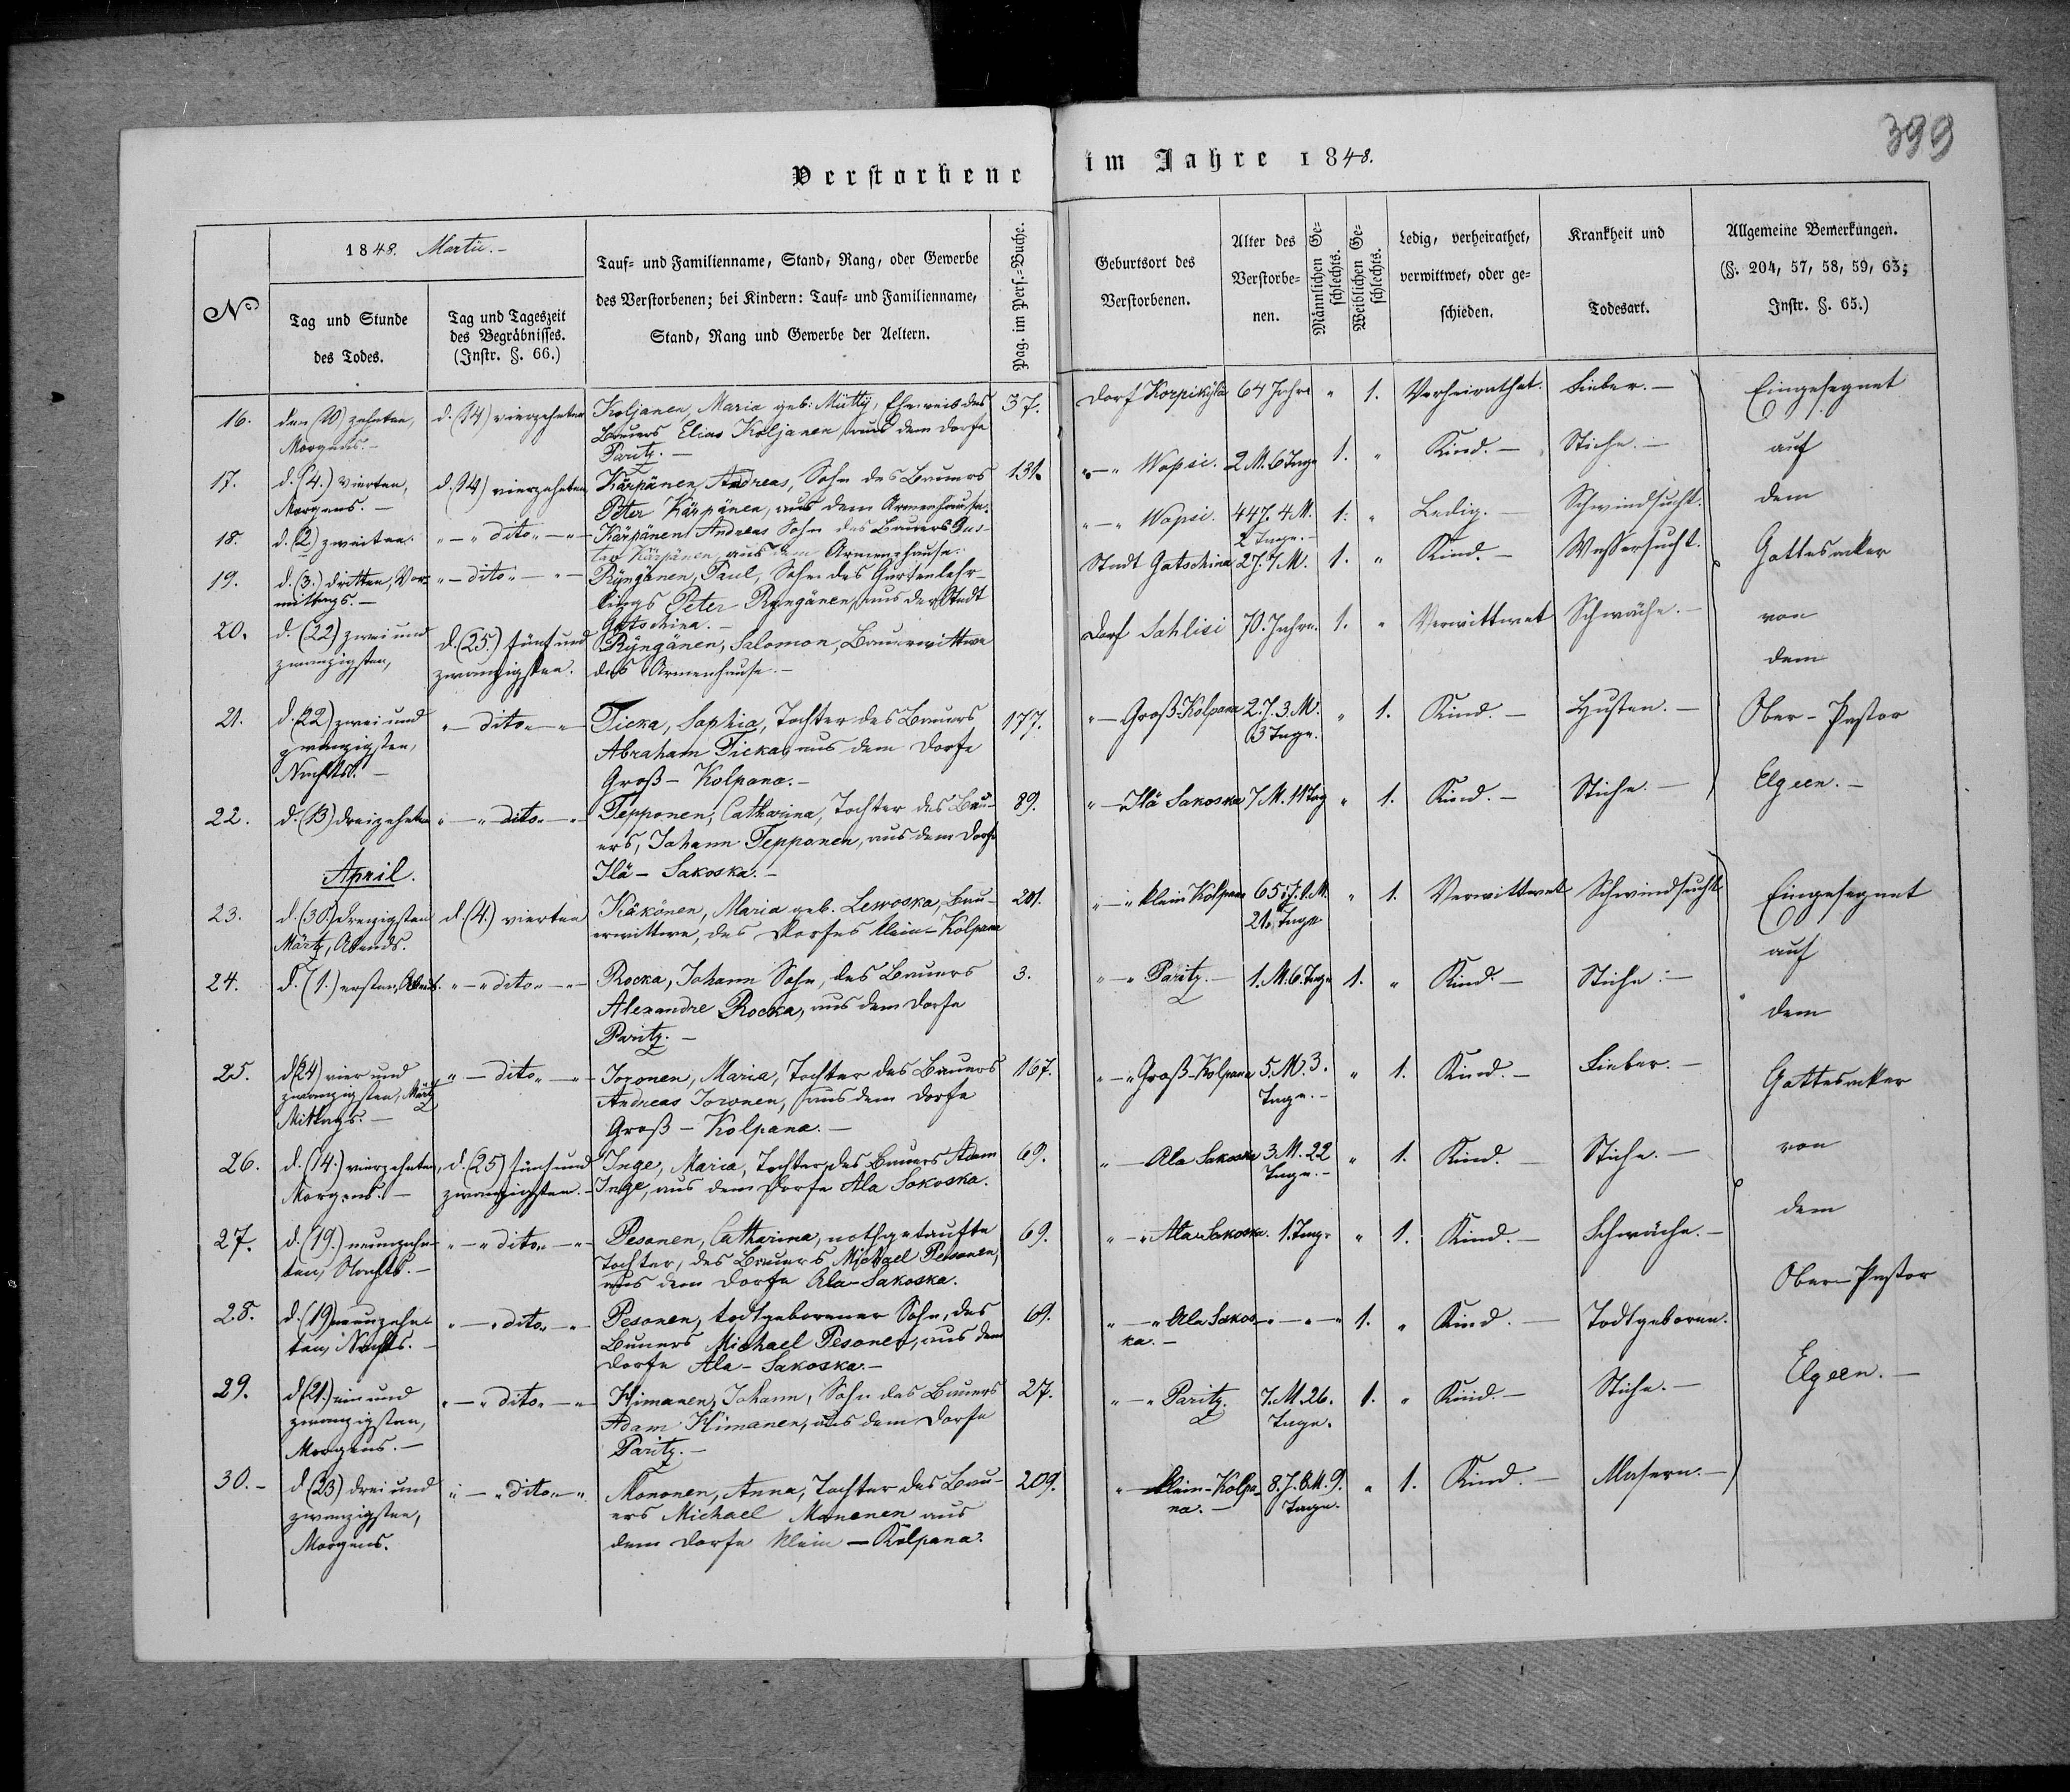 399
Verstorbene im Jahre 1848.
No
1848. Martii.-
Tag und Stunde
des Todes.
Tag und Tageszeit
des Begräbnisses.
(Instr. §. 66.)
Tauf- und Familienname, Stand, Rang, oder Gewerbe
des Verstorbenen; bei Kindern: Tauf- und Familienname,
Stand, Rang und Gewerbe der Aeltern.
Pag. im Pers.-Buche.
Geburtsort des
Verstorbenen.
Alter des
Verstorbe-
nen.
Männlichen Ge-
schlechts.
Weiblichen Ge-
schlechts.
Ledig, verheirathet,
verwittwet, oder ge-
schieden.
Krankheit und
Todesart.
Allgemeine Bemerkungen.
(§. 204, 57, 58, 59, 63;
Instr. §. 65.)
16. den (10) zehnten, d. (14) vierzehnten Koljanen, Maria geb: Mütty, Eheweib des 37. Dorf Korpikylä 64 Jahre " 1. Verheirathet. Fieber.-
Morgens.- Bauers Elias Koljanen, aus dem Dorfe
Paritz.-
17. d. (4.) vierten, d. (14) vierzehnten, Kärpänen, Andreas, Sohn des Bauers 131. "-" Wopsi. 2 M. 6 Tage 1. " Kind.- Stiche.-
Morgens.- Peter Kärpänen, aus dem Armenhause.
18. d. (2) zweiten. "-" dito "-" Kärpänen, Andreas Sohn des Bauers Gus- "-" Wopsi. 44 J. 4 M. 1. " Ledig.- Schwindsucht.
tav Kärpänen, aus dem Armenhause. 2 Tage.-
19. d. (3.) dritten, Vor- "-dito"-" Ryngänen, Paul, Sohn des Gartenlehr- Stadt Gatschina 2 J. 7 M. 1. " Kind.- Wassersucht.
mittags.- lings Peter Ryngänen, aus der Stadt
Gatschina.-
20. d. (22) zwei und d. (25.) fünf und Ryngänen, Salomon, Bauerwittwe Dorf Sahlisi 70. Jahre. 1. " Verwittwet Schwäche.-
zwanzigsten, zwanzigsten. des Armenhause.-
21. d. (22) zwei und "-dito"-" Ticka, Sophia, Tochter des Bauers 177. "-Groß-Kolpana 2. J. 3. M. " 1. Kind.- Husten.-
zwanzigsten, Abraham Ticka, aus dem Dorfe 3 Tage.
Nachts.- Groß-Kolpana.-
22. d. (13) dreizehnten "-"dito"-" Tepponen, Catharina, Tochter des Bau- 89. "-Ilä Sakoska 7 M. 11 Tag " 1. Kind.- Stiche.-
ers, Johann Tepponen, aus dem Dorfe
Ilä-Sakoska.-
Eingesegnet
auf
dem
Gottesacker
von
dem
Ober-Pastor
Elgeen.-
April.
23. d. (30.) dreizigsten d. (4.) vierten Käkönen, Maria geb. Lewoska, Bau- 201. "-"klein Kolpana 65. J. 1. M. " 1. Verwittwet Schwindsucht
Märtz, Abends. erwittwe, des Dorfes klein-Kolpana 21. Tage.
24. d. (1.) ersten, Abends. "-"dito"-" Rocka, Johann Sohn, des Bauers 3. "-" Paritz.- 1. M. 6. Tage 1. " Kind.- Stiche.-
Alexandre Rocka, aus dem Dorfe
Paritz.-
25. d (24) vier und "-dito"-" Joronen, Maria, Tochter des Bauers 167. "-"Groß-Kolpana 5. M. 3. " 1. Kind.- Fieber.-
zwanzigsten, Märtz Andreas Joronen, aus dem Dorfe Tage.-
Mittags.- Groß-Kolpana.-
26. d. (14.) vierzehnten, d. (25) fünf und Inge, Maria, Tochter des Bauers Adam 69. "-Ala Sakoska 3 M. 22 " 1. Kind.- Stiche.-
Morgens.- zwanzigsten.- Inge, aus dem Dorfe Ala Sakoska. Tage.-
27. d. (19.) neunzehn- "-"dito"-" Pesonen, Catharina, nothgetaufte 69. "-"Ala Sakoska. 1. Tage " 1. Kind.- Schwäche.-
ten, Nachts.- Tochter, des Bauers Michael Pesonen,
aus dem Dorfe Ala-Sakoska.
28. d. (19) neunzehn- "-"dito"-" Pesonen, todtgeborener Sohn, des 69. "-"Ala Sakos- "-"-" 1. " Kind.- Todtgeboren.
ten, Nachts.- Bauers Michael Pesonen, aus dem ka.-
Dorfe Ala-Sakoska.-
29. d (21.) ein und "-"dito"-" Himanen, Johann, Sohn des Bauers 27. "-"Paritz. 7. M. 26. 1. " Kind.- Stiche.-
zwanzigsten, Adam Himanen, aus dem Dorfe Tage.
Morgens.- Paritz.-
30.- d (23) drei und "-"dito"-" Mononen, Anna, Tochter des Bau- 209. "-klein-Kolpa- 8. J. 6. M. 9. " 1. Kind.- Masern.-
zwanzigsten, ers Michael Mononen aus na.- Tage.
Morgens. dem Dorfe klein-Kolpana.
Eingesegnet
auf
dem
Gottesacker
von
dem
Ober-Pastor
Elgeen.-